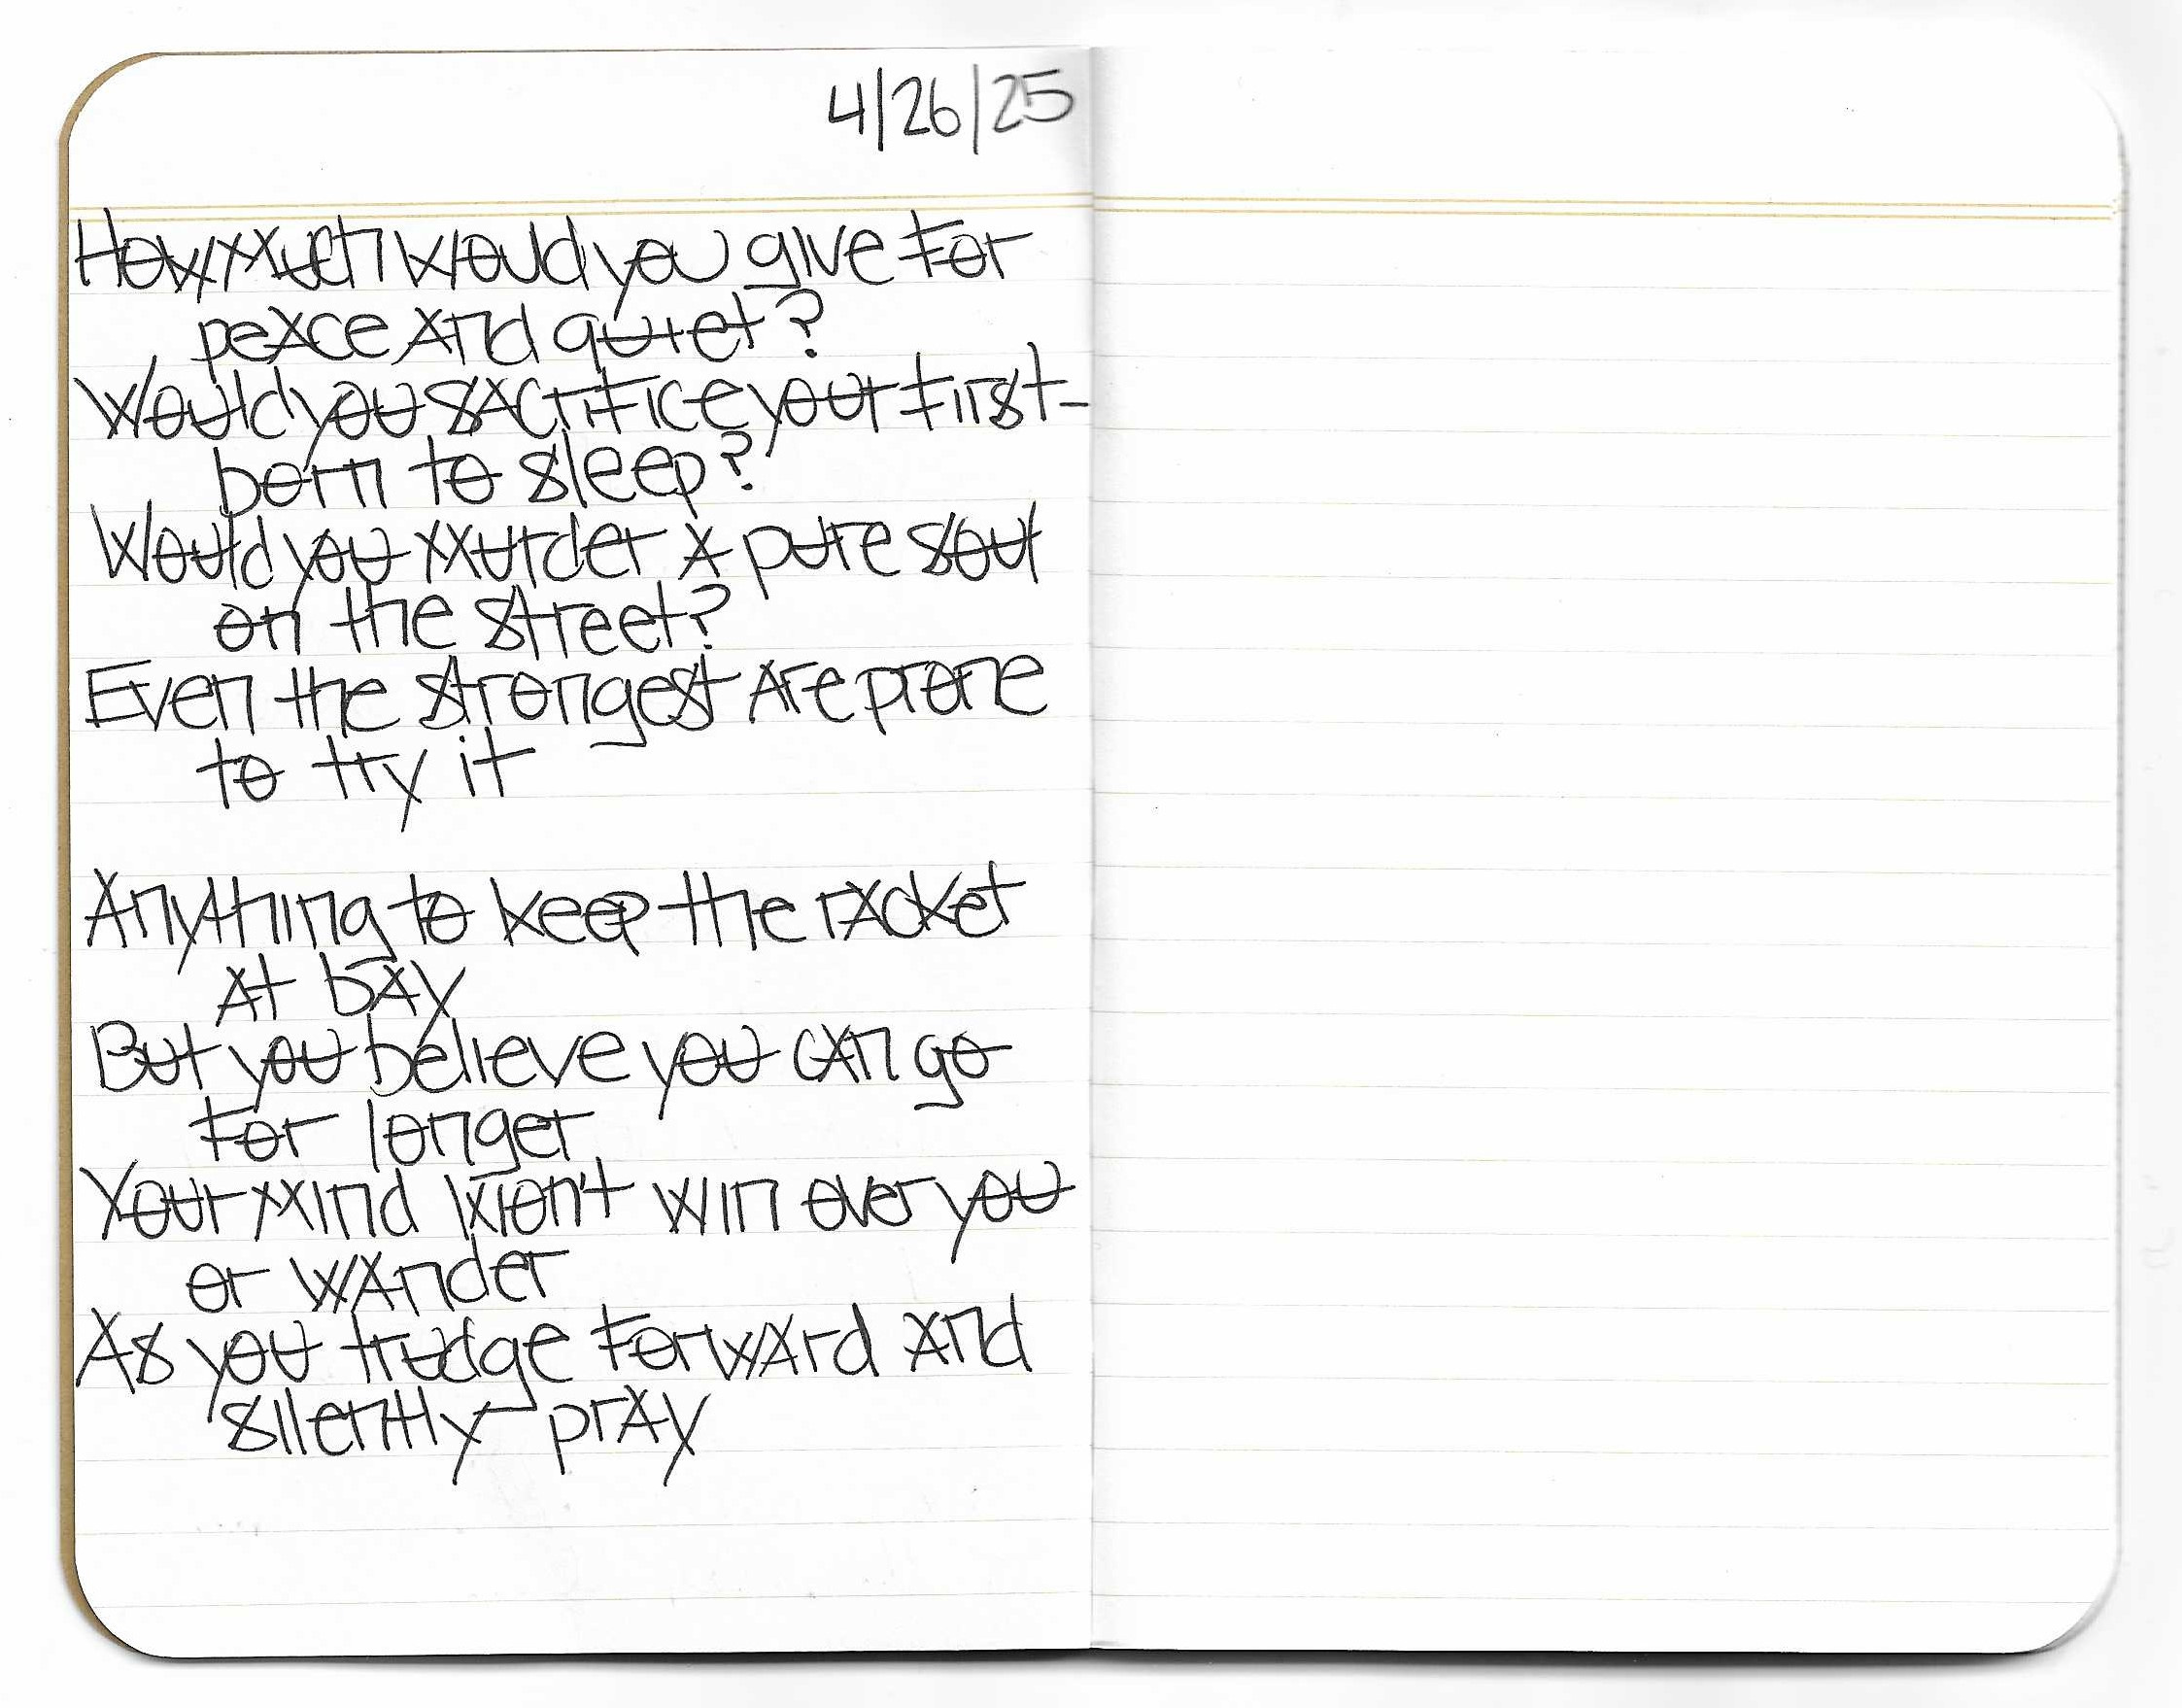 4/26/25
How much would you give for
peace and quiet?
Would you sacrifice your first-
born to sleep?
Would you murder a pure soul
on the street?
Even the strongest are prone
to try it
Anything to keep the racket
at bay
But you believe you can go
for longer
Your mind won't win over you
or wander
As you trudge forward and
silently pray